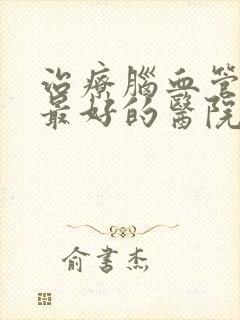 治療腦血管
最好的醫院
俞書杰